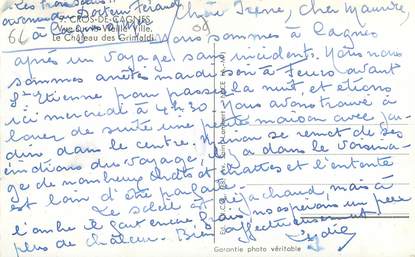 Chère Irène, cher Maurice,
9. CROS-DE-CAGNES
Vue sur la Vieille Ville,
Le Château des Grimaldi
Nous sommes à Cagnes
après un voyage sans incident. Nous nous
sommes arrêtés mardi soir à Feurs avant
St Etienne pour passer la nuit, et étions
ici mercredi à 4 h 30. Nous avons trouvé à
louer de suite une petite maison avec jar-
din dans le centre. se remet de ses
émotions du voyage, il y a dans le voisina-
ge de nombreux chats et chattes et l'entente
est loin d'être parfaite.
Le soleil est déjà chaud, mais à
l'ombre il fait encore frais nous espérons un peu
plus de chaleur. Bien affectueusement
Lydie
Garantie photo véritable